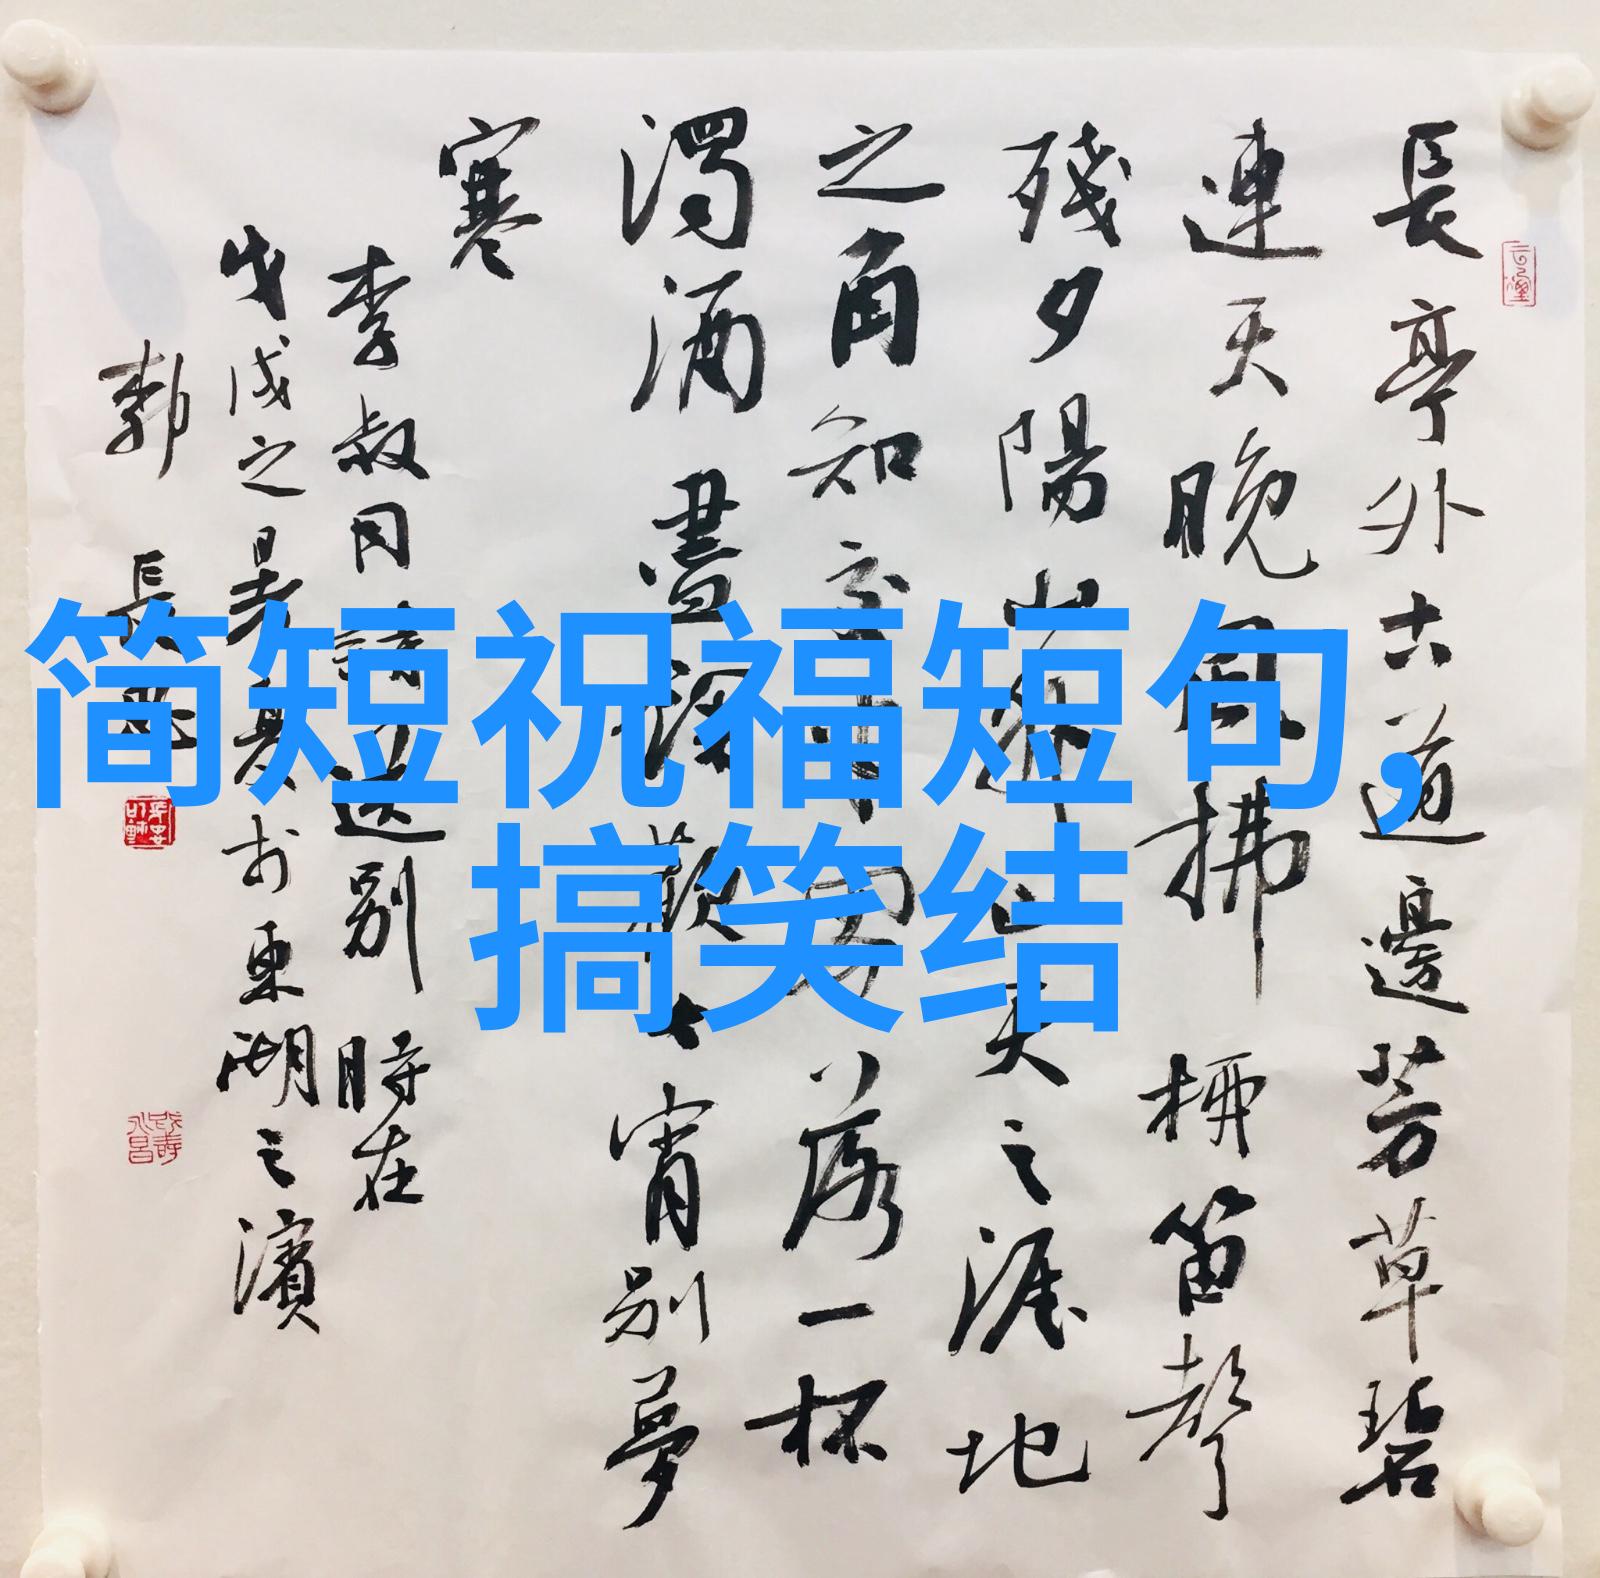 長亭外古道邊芳草碧
連天晚風拂柳笛聲
殘夕陽山外山天之涯地
之角知交半零落一杯
濁酒盡餘歡今宵別夢
寒
李叔同詩送别 時在
戊戌之暑夏於東湖之濱
郭 長
简短祝福短句，
搞笑结